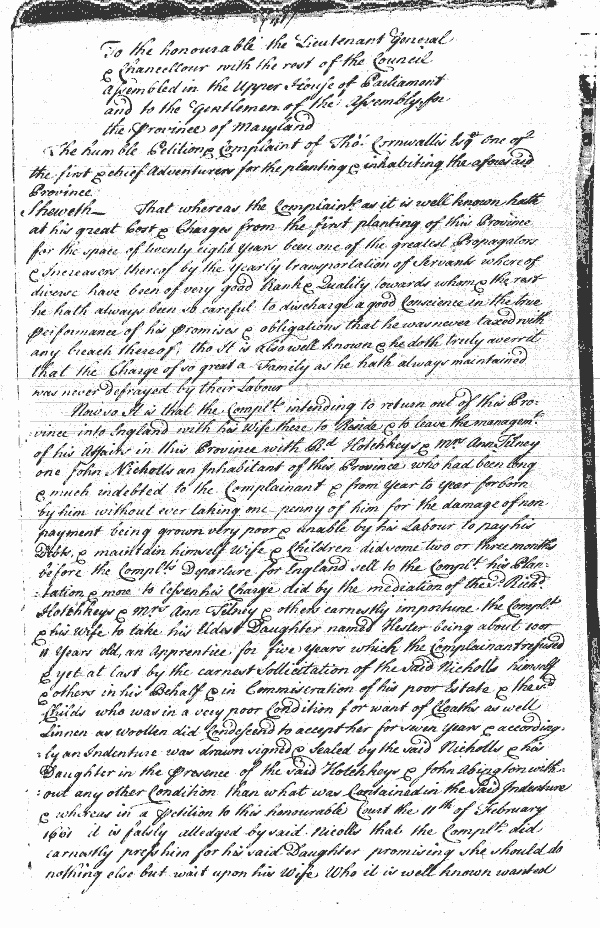 To the honourable the Lieutenant General
& Chancellour with the rest of the Council
Assembled in the Upper House of Parliament
and to the Gentlemen of the Assembly for
the Province of Maryland
The humble Petition & Complaint of Tho: Cornwallis Esqr. one of
the first & chief Adventurers for the planting & inhabiting the aforesaid
Province
Sheweth That whereas the Complaint. as it is well known hath
at his great Cost & Charges from the first planting of this Province
for the space of twenty eight Years been one of the greatest Propagators
& Increasors thereof by the Yearly transportation of Servants whereof
diverse have been of very good Rank & Quality towards whom & the rest
he hath always been so careful to discharge a good Conscience in the true
Performance of his Promises & obligations that he was never taxed with
any breach thereof, tho It is also well known & he doth truly averrd
that the Charge of so great a Family as he hath always maintained
was never defrayed by their Labour
Now so It is that the Complt. intending to return out of this Pro-
vince into England with his Wife there to Reside & to leave the managemt.
of his Affairs in this Province with Rd. Hotchkeys & Mrs Ann Tilney
one John Nicholls an Inhabitant of this Province who had been long
& much indebted to the Complainant & from Year to Year forborn
by him without ever taking one penny of him for the damage of non
payment being grown very poor & unable by his Labour to pay his
Debts, & maintain himself Wife & Children did some two or three months
before the Complts. Departure for England sell to the Complt. his Plan-
:tation & more to lessen his Charge did by the mediation of the sd. Richd.
Hotchkeys & Mrs Ann Tilney & others earnestly importune the Complt.
& his Wife to take his Eldest Daughter named Hester being about 10 or
11 Years old, an Apprentice for five Years which the Complainant refused
& yet at last by the earnest Sollicitation of the said Nicholls himself
& others in his Behalf & in Commiseration of his poor Estate & the sd.
Childs who was in a very poor Condition for want of Cloaths as well
Linnen as woollen did Condescend to accept her for seven Years & according-
:ly an Indenture was drawn signed & Sealed by the said Nicholls & his
Daughter in the Presence of the said Hotchkeys & John Abington with-
:out any other Condition than what was Contained in the said Indenture
& whereas in a Petition to this honourable Court the 11th of February
1661 it is falsly alledged by said Nicolls that the Complt. did
earnestly press him for his said Daughter promising she should do
nothing else but wait upon his Wife Who it is well known wanted